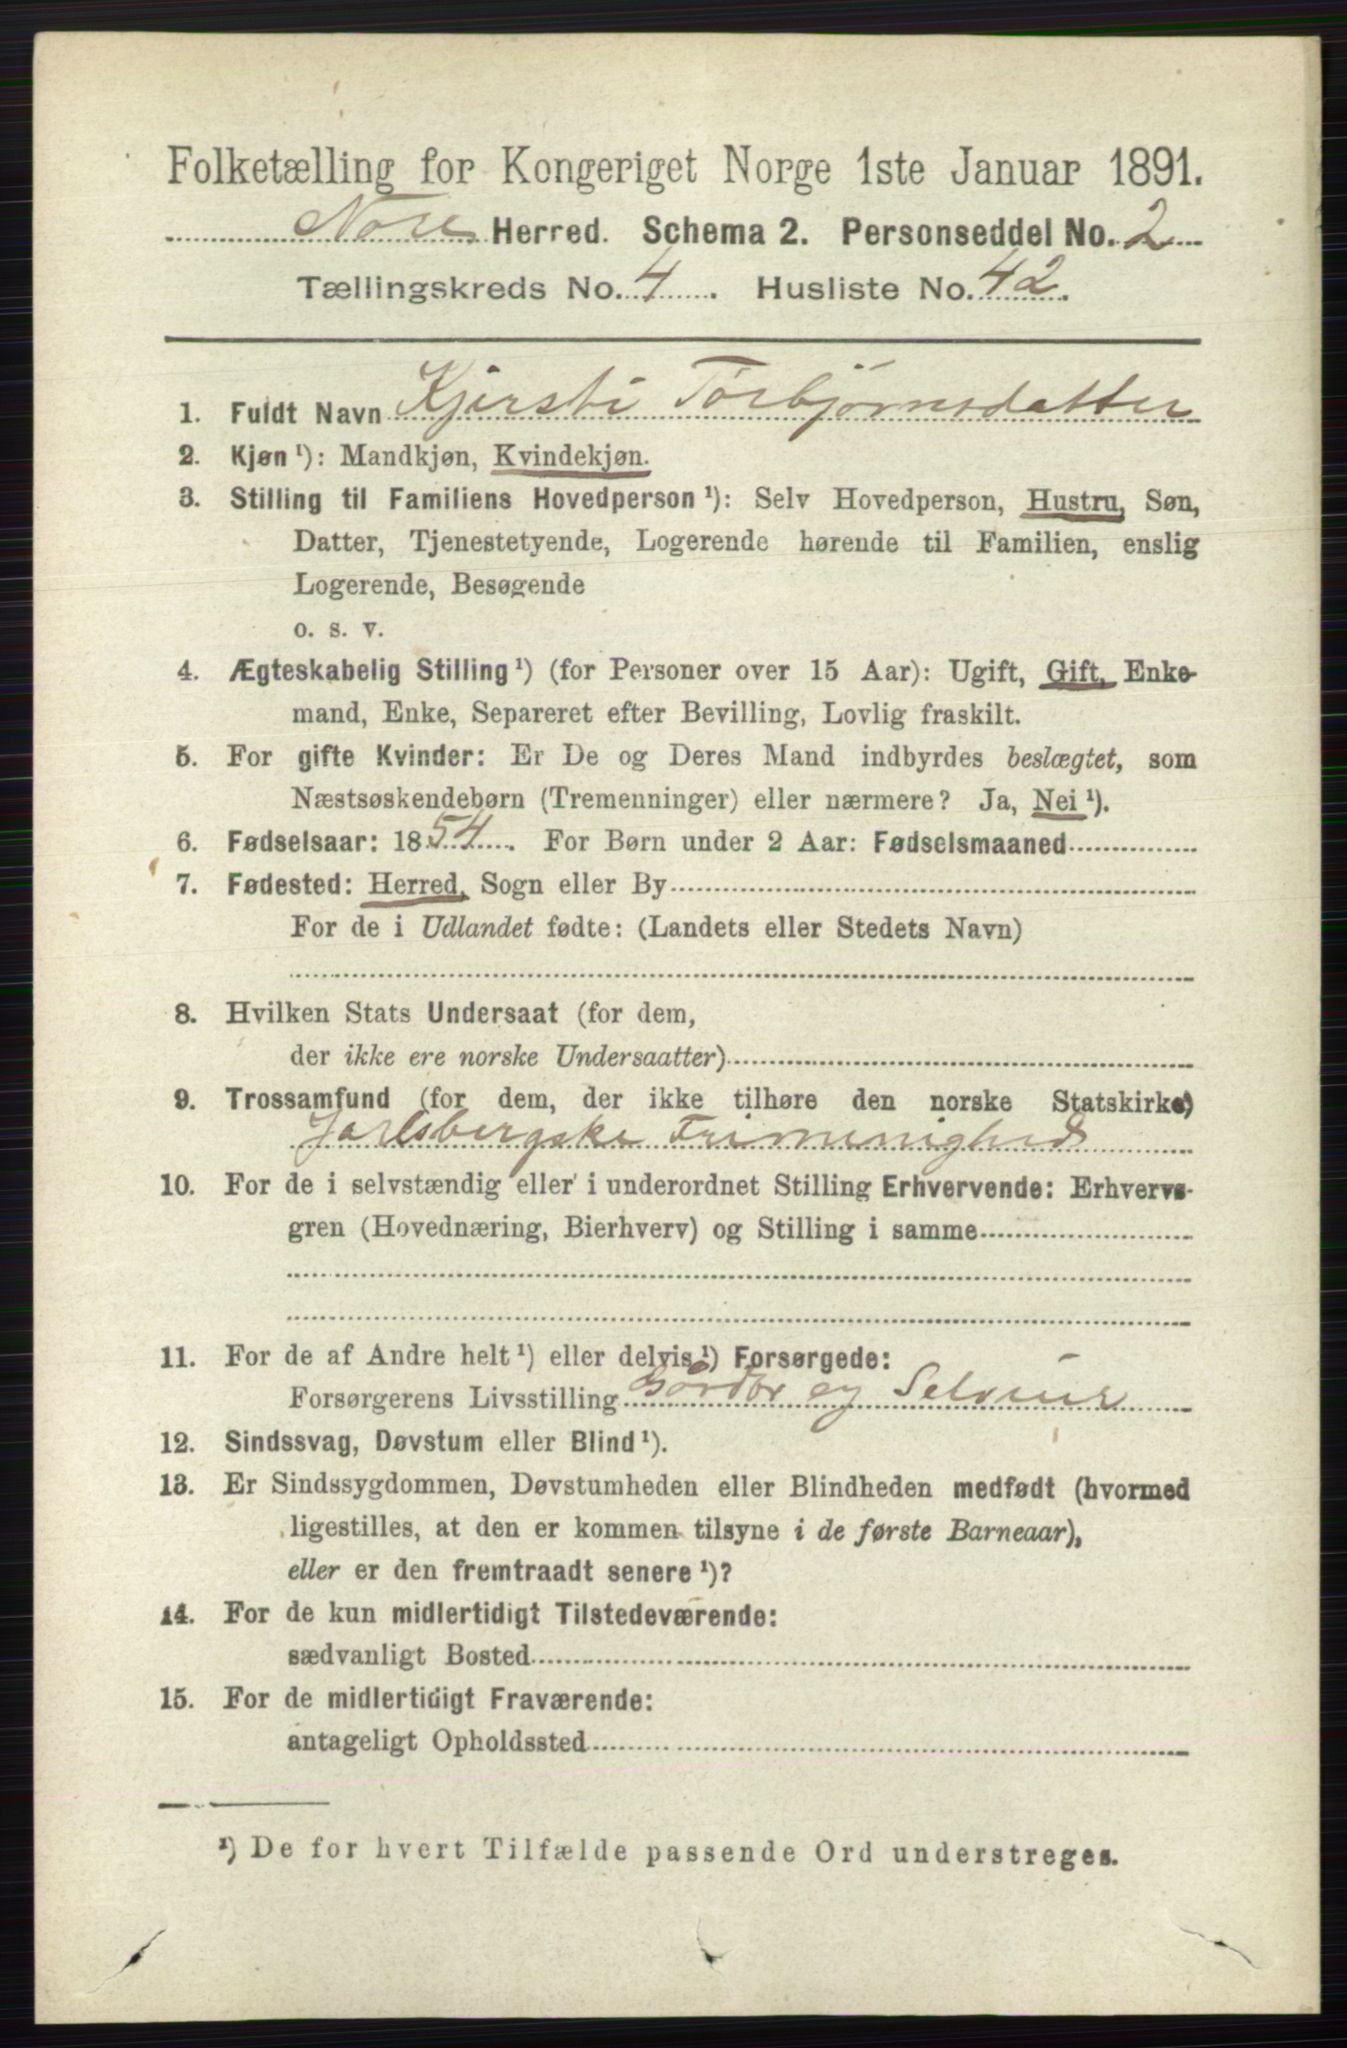 Folketælling for Kongeriget Norge 1ste Januar 1891.
Nore Herred. Schema 2. Personseddel No. 2
Tællingskreds No. 4. Husliste No. 42.
1. Fuldt Navn Kjersti Torbjørnsdatter
2. Kjøn ¹): Mandkjøn, Kvindekjøn.
3. Stilling til Familiens Hovedperson ¹): Selv Hovedperson, Hustru, Søn,
Datter, Tjenestetyende, Logerende hørende til Familien, enslig
Logerende, Besøgende
o. s. v.
4. Ægteskabelig Stilling ¹) (for Personer over 15 Aar): Ugift, Gift, Enke-
mand, Enke, Separeret efter Bevilling, Lovlig fraskilt.
5. For gifte Kvinder: Er De og Deres Mand indbyrdes beslægtet, som
Næstsøskendebørn (Tremenninger) eller nærmere? Ja, Nei ¹).
6. Fødselsaar: 1854. For Børn under 2 Aar: Fødselsmaaned
7. Fødested: Herred, Sogn eller By
For de i Udlandet fødte: (Landets eller Stedets Navn)
8. Hvilken Stats Undersaat (for dem,
der ikke ere norske Undersaatter)
9. Trossamfund (for dem, der ikke tilhøre den norske Statskirke)
Jarlsbergske Frimenighed
10. For de i selvstændig eller i underordnet Stilling Erhvervende: Erhvervs-
gren (Hovednæring, Bierhverv) og Stilling i samme
11. For de af Andre helt ¹) eller delvis ¹) Forsørgede:
Forsørgerens Livsstilling Gårdbr og Selveier
12. Sindssvag, Døvstum eller Blind ¹).
13. Er Sindssygdommen, Døvstumheden eller Blindheden medfødt (hvormed
ligestilles, at den er kommen tilsyne i de første Barneaar),
eller er den fremtraadt senere ¹)?
14. For de kun midlertidigt Tilstedeværende:
sædvanligt Bosted
15. For de midlertidigt Fraværende:
antageligt Opholdssted
¹) De for hvert Tilfælde passende Ord understreges.